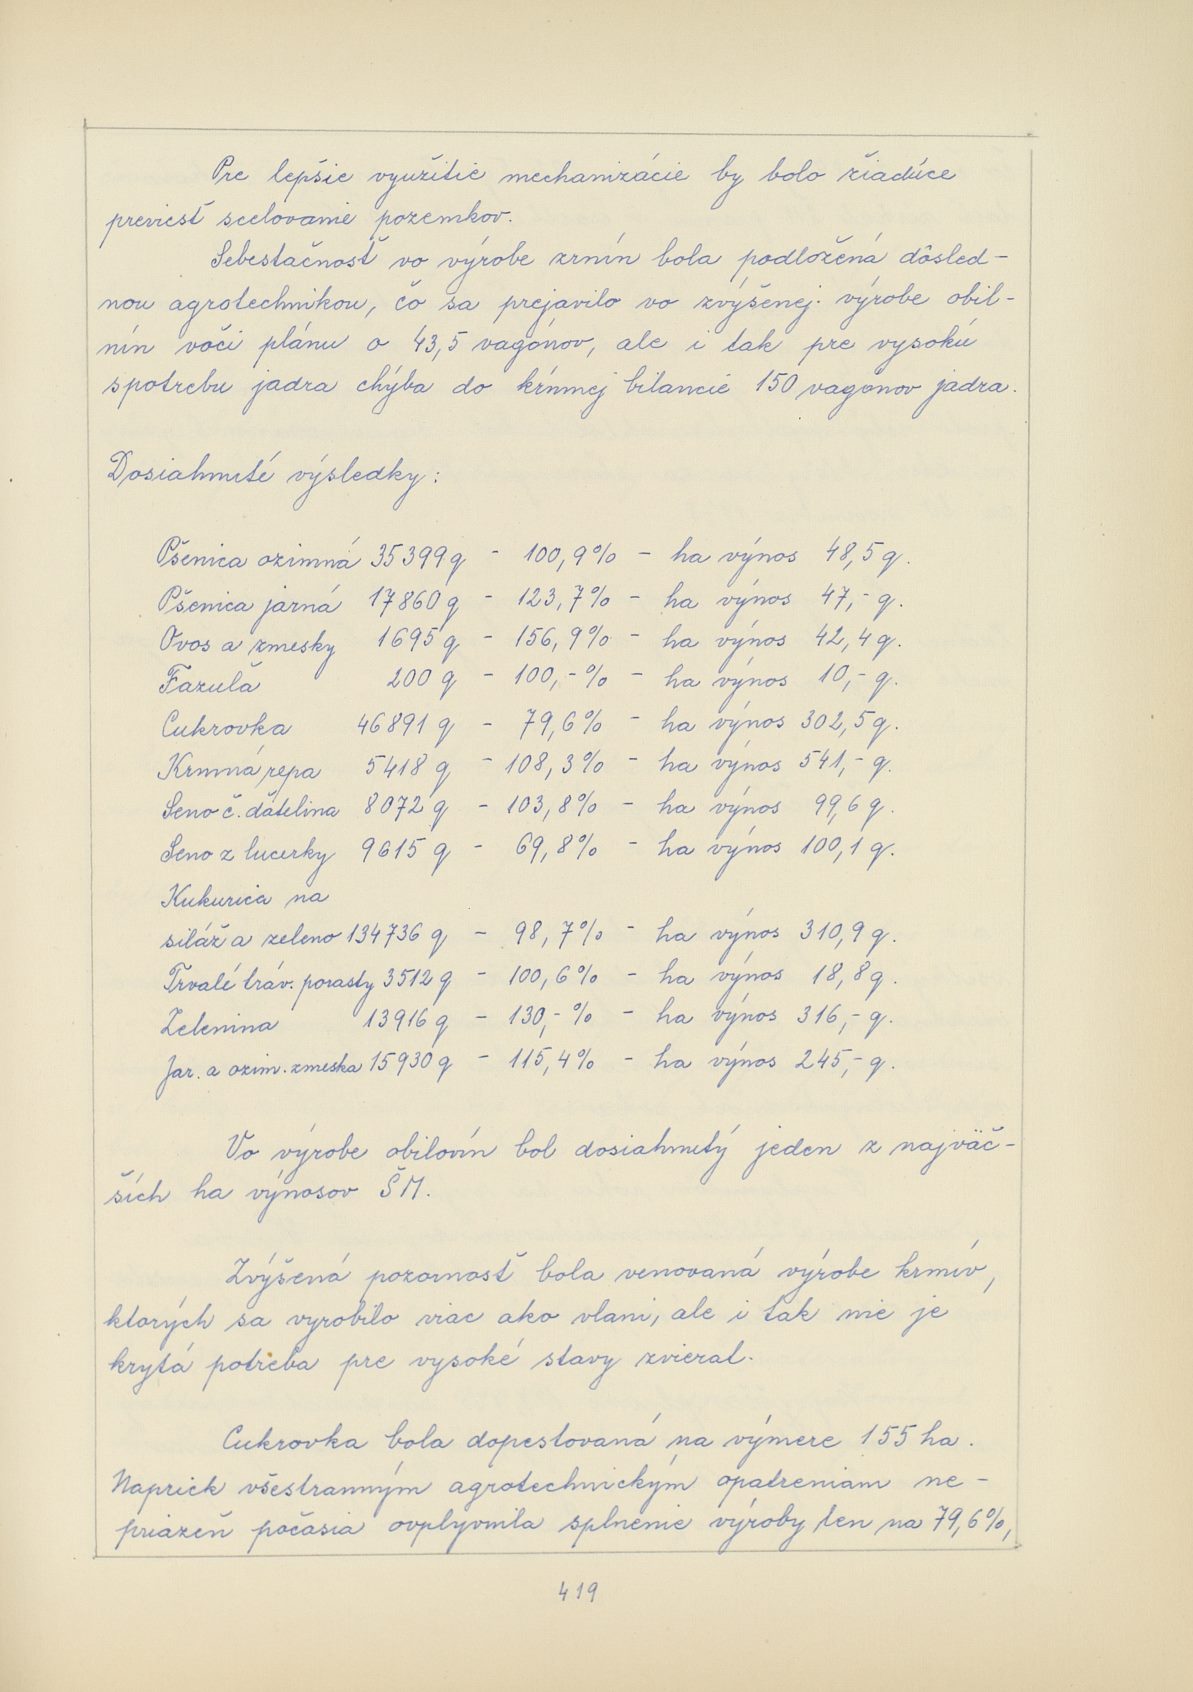 Pre lepšie využitie mechanizácie by bolo žiadúce
previesť scelovanie pozemkov.
Sebestačnosť vo výrobe zrnín bola podložená dôsled-
nou agrotechnikou, čo sa prejavilo vo zvýšenej výrobe obil-
nín voči plánu o 43,5 vagónov, ale i tak pre vysokú
spotrebu jadra chýba do kŕmnej bilancie 150 vagonov jadra.
Dosiahnuté výsledky:
Pšenica ozimná 35399 q - 100,9% - ha výnos 48,5 q.
Pšenica jarná 17860 q - 123,7% - ha výnos 47,- q.
Ovos a zmesky 1695 q - 156,9% - ha výnos 42,4 q.
Fazuľa 200 q - 100,-% - ha výnos 10,- q.
Cukrovka 46891 q - 79,6% - ha výnos 302,5 q.
Krmná repa 5418 q - 108,3% - ha výnos 541,- q.
Seno č. ďatelina 8072 q - 103,8% - ha výnos 99,6 q.
Seno z lucerky 9615 q - 69,8% - ha výnos 100,1 q.
Kukurica na
siláž a zeleno 134736 q - 98,7% - ha výnos 310,9 q.
Trvalé tráv. porasty 3512 q - 100,6% - ha výnos 18,8 q.
Zelenina 13916 q - 130,-% - ha výnos 316,- q.
Jar. a ozim. zmeska 15930 q - 115,4% - ha výnos 245,- q.
Vo výrobe obilovín bol dosiahnutý jeden z najväč-
ších ha výnosov ŠM.
Zvýšená pozornosť bola venovaná výrobe krmív,
ktorých sa vyrobilo viac ako vlani, ale i tak nie je
krytá potreba pre vysoké stavy zvierat.
Cukrovka bola dopestovaná na výmere 155 ha.
Napriek všestranným agrotechnickým opatreniam ne-
priazeň počasia ovplyvnila splnenie výroby len na 79,6%,
419